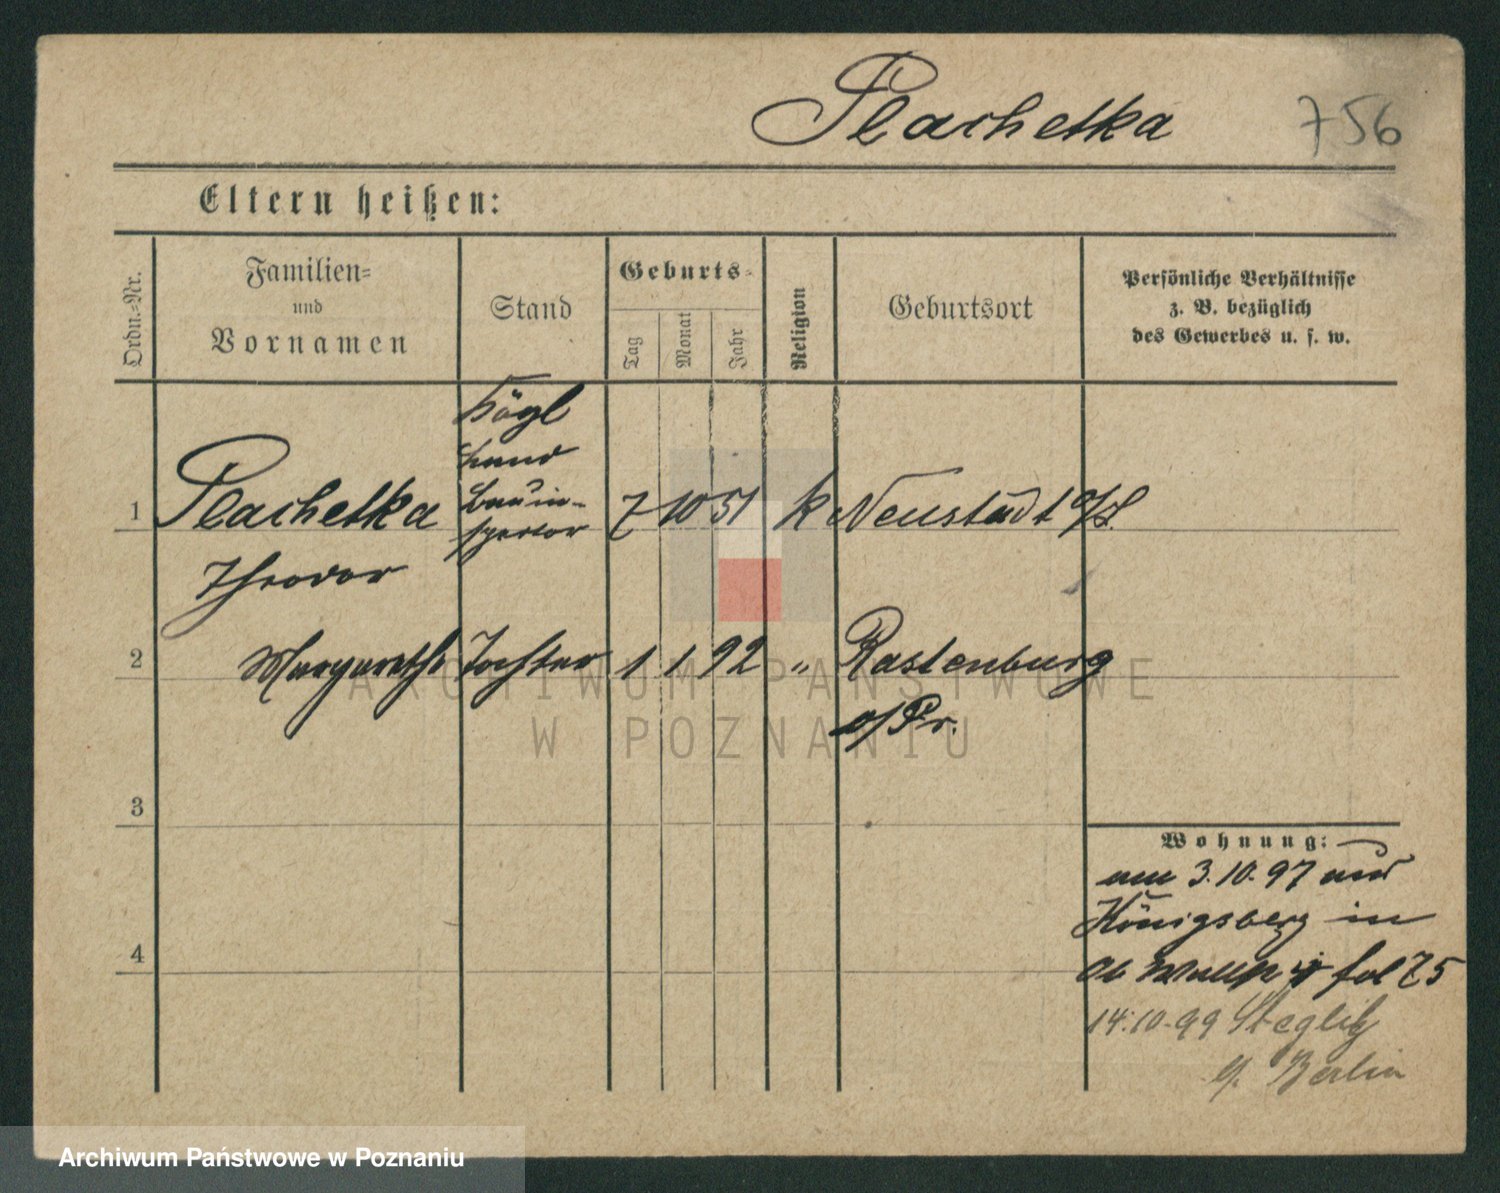 Plachetka 756
Eltern heißen:
Ordn.=Nr.
Familien=
und
Vornamen
Stand
Geburts=
Tag
Monat
Jahr
Religion
Geburtsort
Persönliche Verhältnisse
z. B. bezüglich
des Gewerbes u. s. w.
Kögl
Land
Bauin-
spector
1 Plachetka 7 10 51 k Neustadt o/S.
Theodor
2 Margarethe Tochter 1 1 92 " Rastenburg
o/Pr.
3
4
Wohnung:
am 3.10.97 aus
Königsberg in
Ob Wallstr fol 75
14.10.99 Steglitz
b/ Berlin
ARCHIWUM PAŃSTWOWE
W POZNANIU
Archiwum Państwowe w Poznaniu